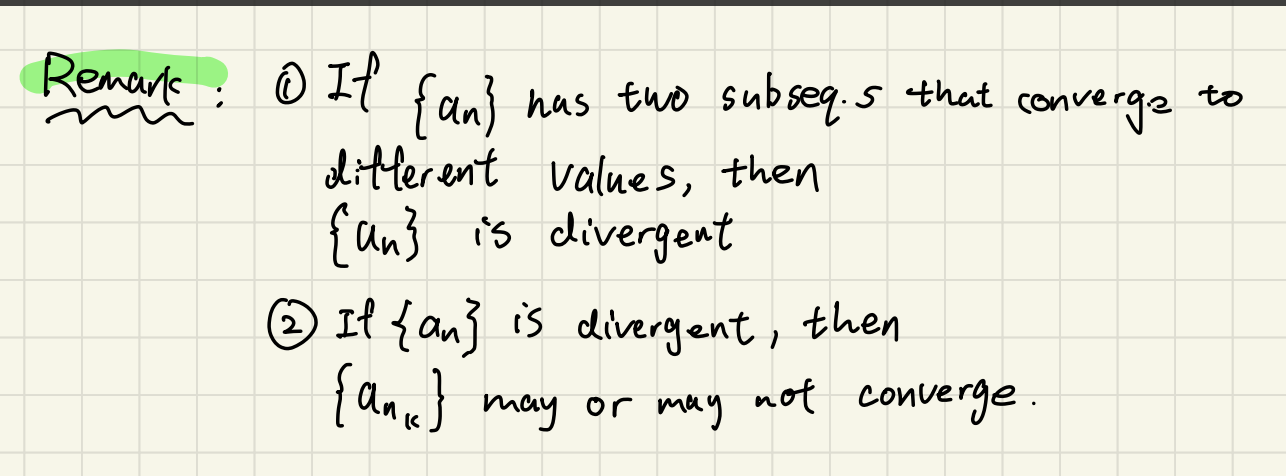 Remark: ① If {aₙ} has two subseq.s that converge to
different values, then
{aₙ} is divergent
② If {aₙ} is divergent, then
{aₙₖ} may or may not converge.